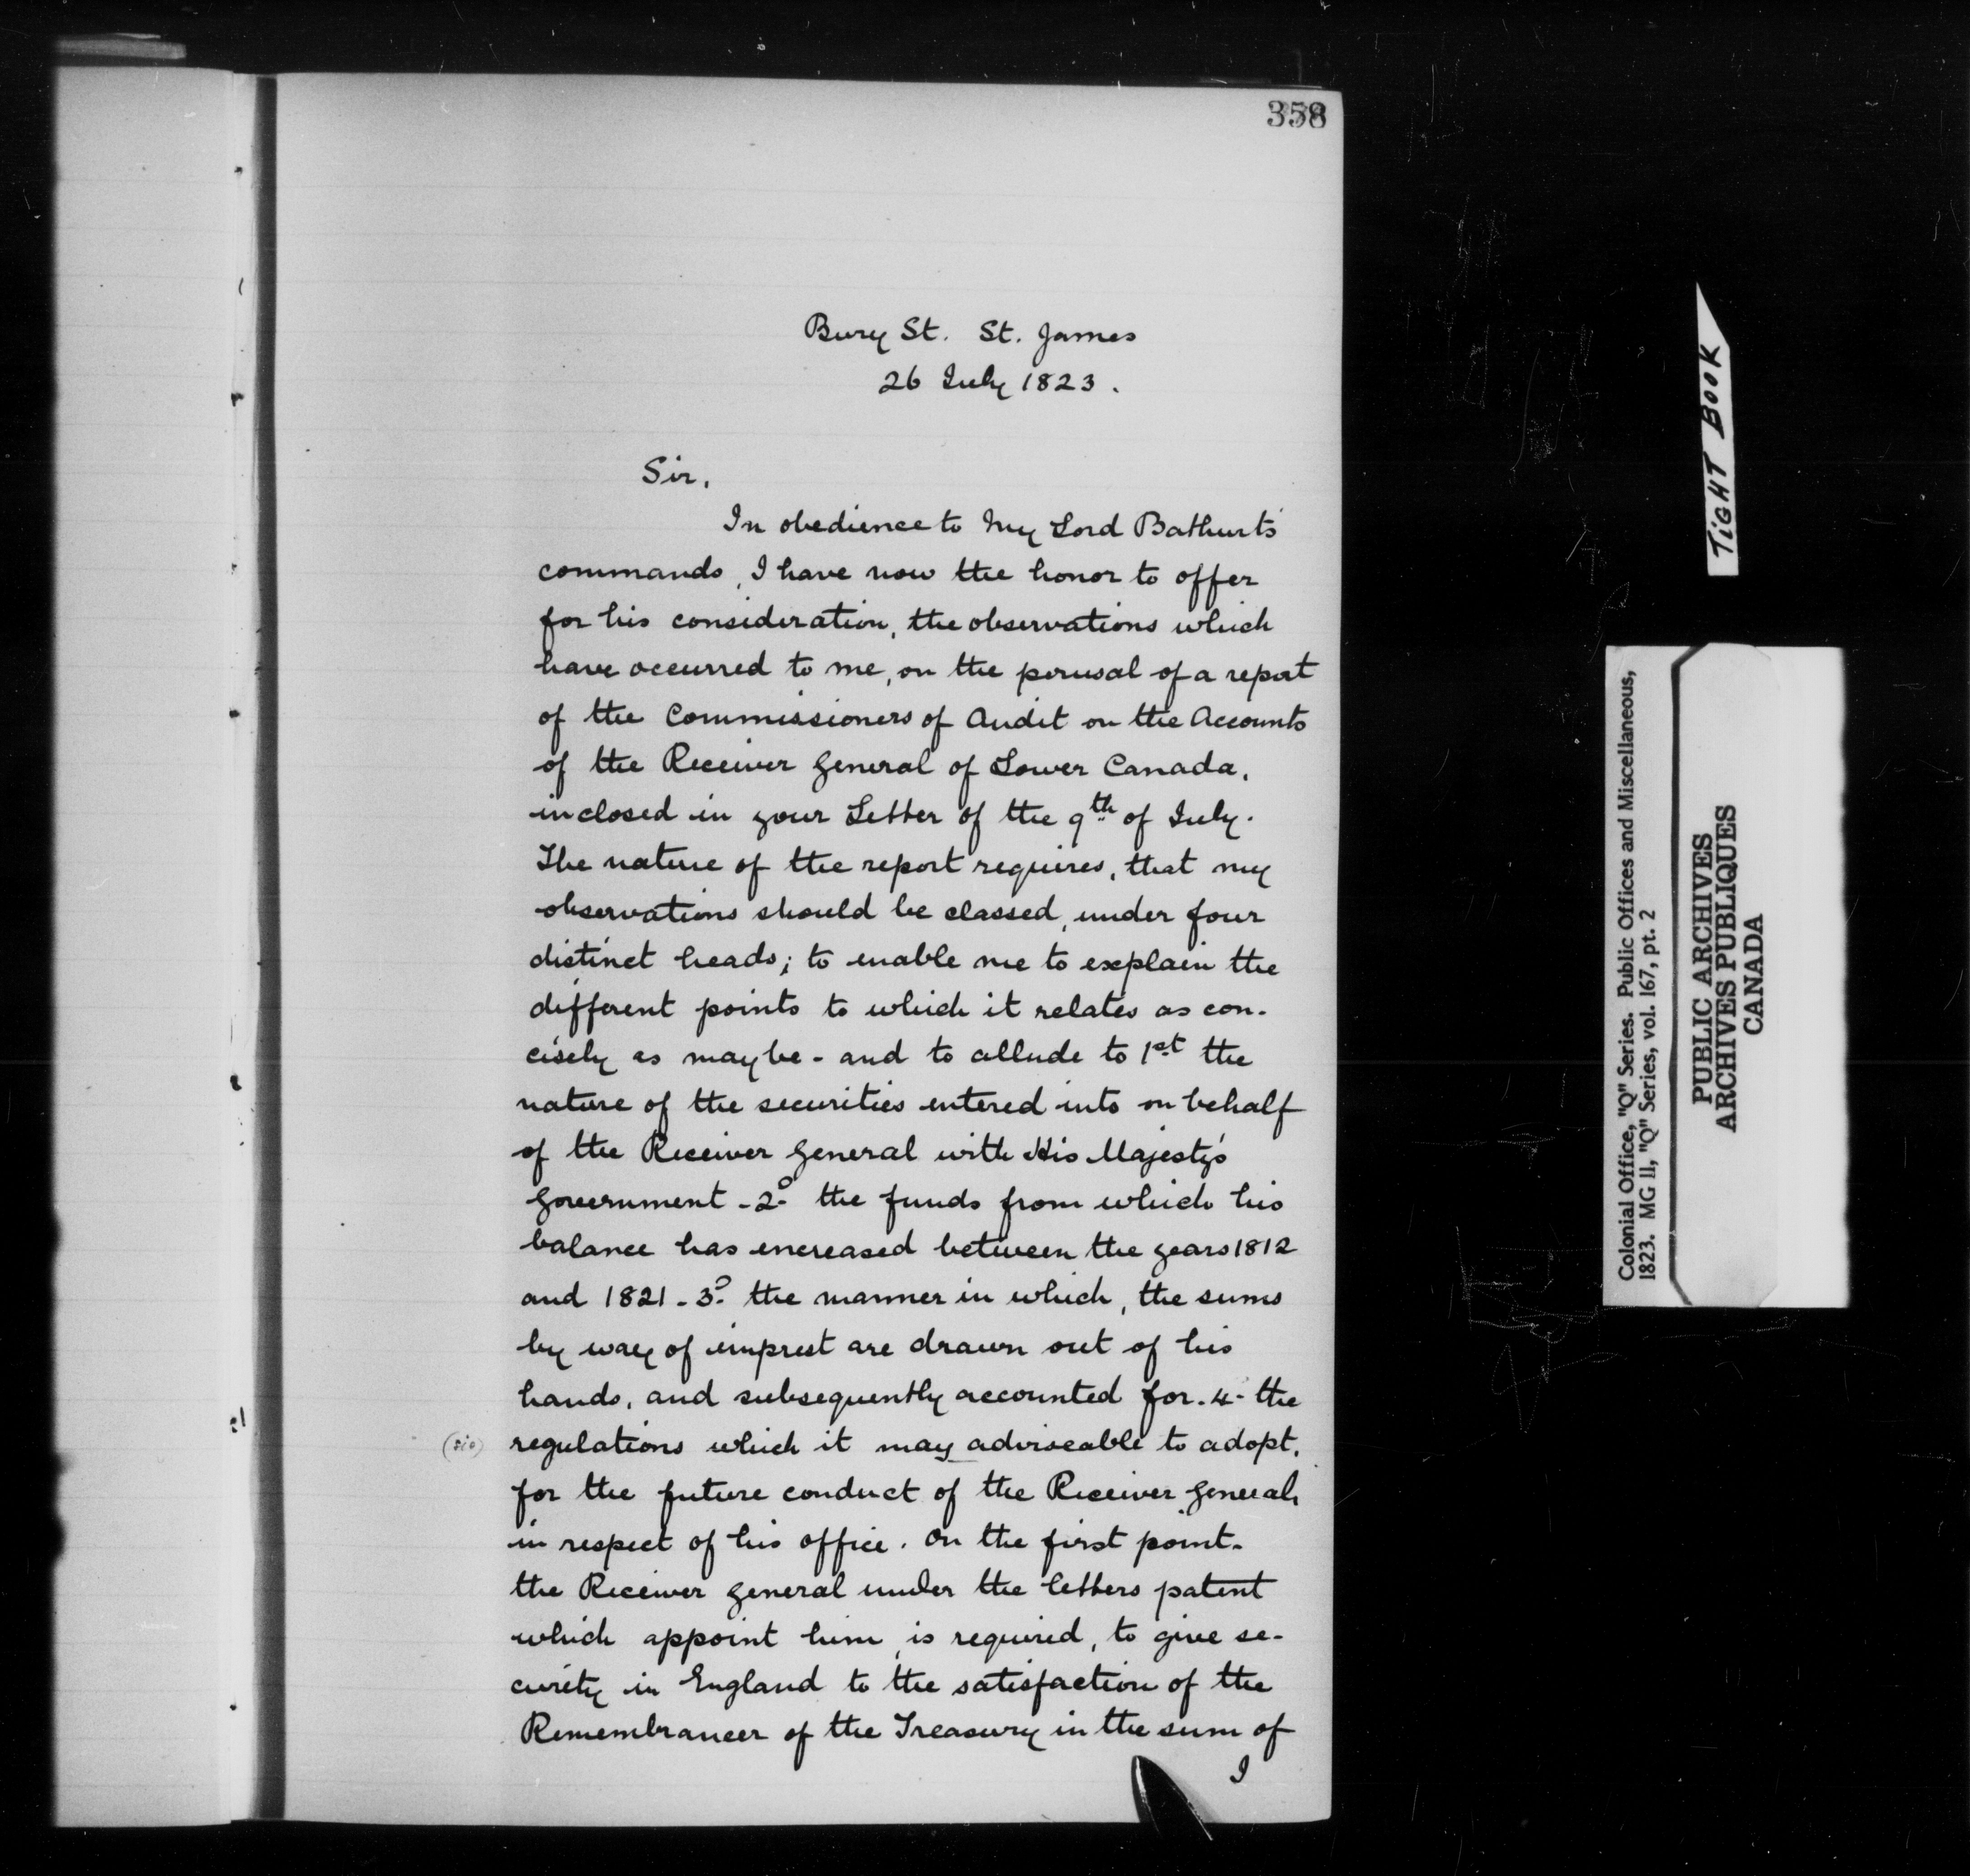 358
Bury St. St. James
26 July 1823.
Sir,
In obedience to My Lord Bathurts'
commands, I have now the honor to offer
for his consideration, the observations which
have occurred to me, on the perusal of a report
of the Commissioners of Audit on the Accounts
of the Receiver General of Lower Canada,
inclosed in your Letter of the 9th of July.
The nature of the report requires, that my
observations should be classed, under four
distinct heads; to enable me to explain the
different points to which it relates as con-
cisely as may be - and to allude to 1st the
nature of the securities entered into on behalf
of the Receiver General with His Majesty's
Government - 2º the funds from which his
balance has encreased between the years 1812
and 1821 - 3º the manner in which, the sums
by way of imprest are drawn out of his
hands, and subsequently accounted for. 4 - the
(sic) regulations which it may adviseable to adopt,
for the future conduct of the Receiver General,
in respect of his office. On the first point -
the Receiver General under the letters patent
which appoint him, is required, to give se-
curity in England to the satisfaction of the
Remembrancer of the Treasury in the sum of
I
TIGHT BOOK
Colonial Office, "Q" Series. Public Offices and Miscellaneous,
1823. MG 11, "Q" Series, vol. 167, pt. 2
PUBLIC ARCHIVES
ARCHIVES PUBLIQUES
CANADA